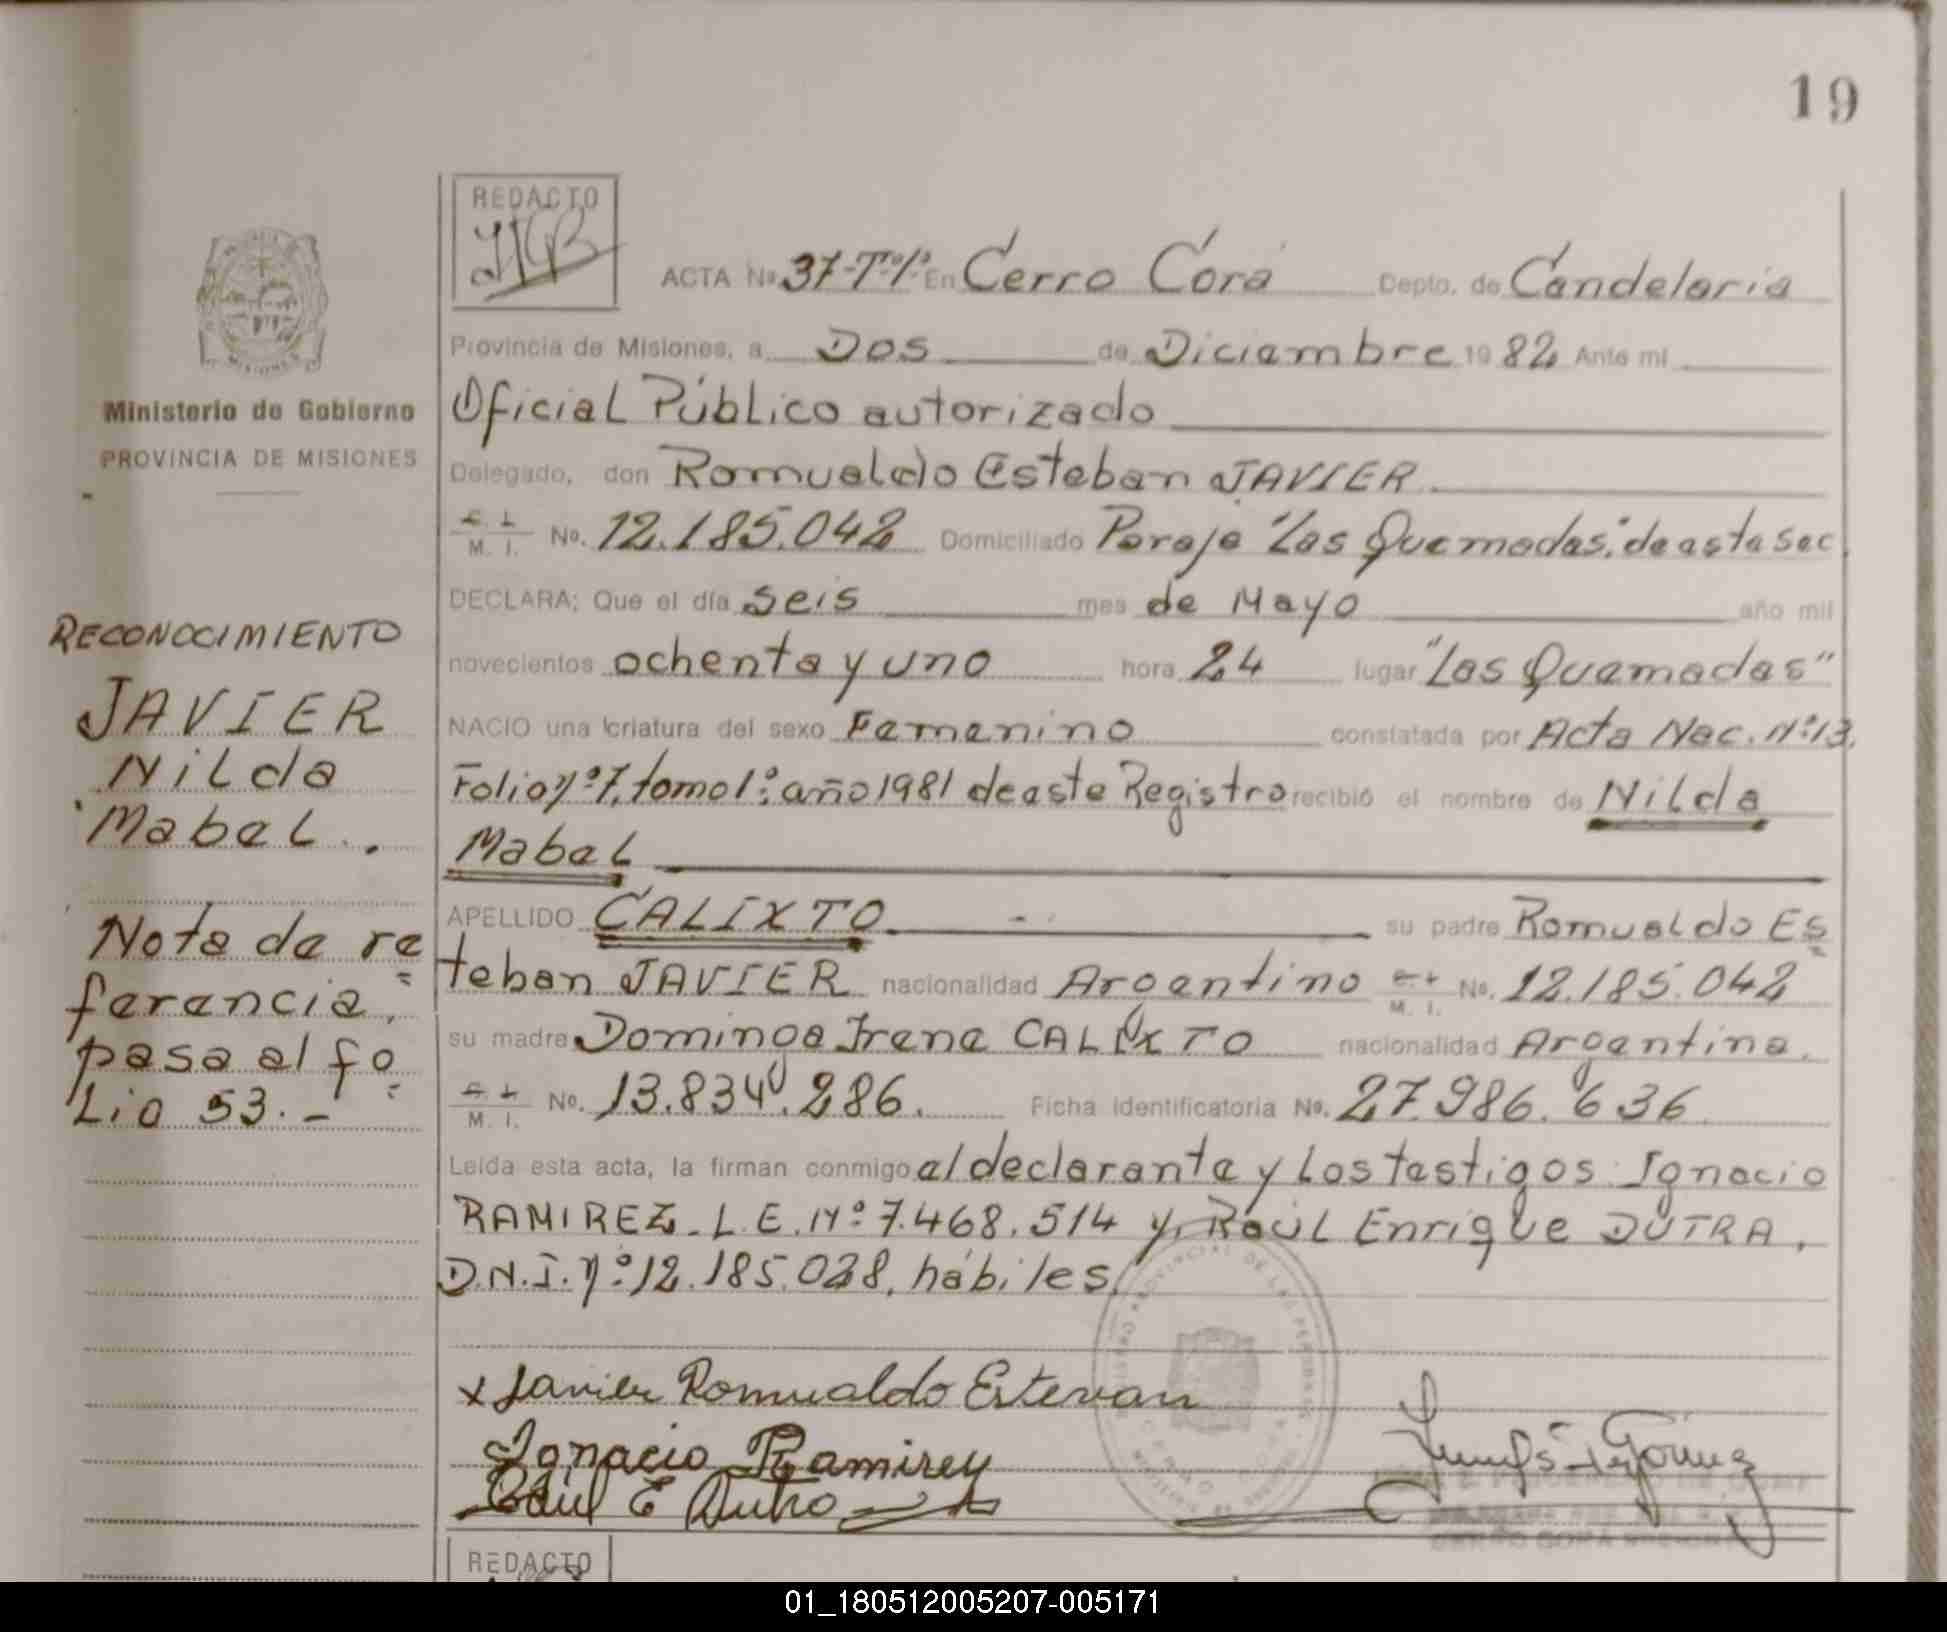 19
REDACTO
ACTA No. 37-Tº1º En Cerro Corá Depto. de Candelaria
Provincia de Misiones, a Dos de Diciembre 19 82 Ante mi
Oficial Público autorizado
Delegado, don Romualdo Esteban JAVIER
C. I. M. I. No. 12.185.042 Domiciliado Paraje "Las Quemadas", de esta Sec.
DECLARA; Que el día seis mes de Mayo año mil
novecientos ochenta y uno hora 24 lugar "Las Quemadas"
NACIO una criatura del sexo Femenino constatada por Acta Nac. Nº 13,
Folio Nº 7, tomo 1º; año 1981 de este Registro recibió el nombre de Nilda
Mabel
APELLIDO CALIXTO su padre Romualdo Es
teban JAVIER nacionalidad Argentino C. I. M. I. No. 12.185.042
su madre Dominga Irene CALIXTO nacionalidad Argentina.
C. I. M. I. No. 13.834.286. Ficha identificatoria No. 27.986.636
Leída esta acta, la firman conmigo el declarante y los testigos Ignacio
RAMIREZ. L.E. Nº 7.468.514 y, Raúl Enrique DUTRA,
D.N.I. Nº 12.185.028, hábiles
x Javier Romualdo Estevan
Ignacio Ramirez
Raul E Dutra
Ministerio de Gobierno
PROVINCIA DE MISIONES
RECONOCIMIENTO
JAVIER
Nilda
Mabel.
Nota de re=
ferencia,
pasa al fo=
Lio 53.-
REDACTO
01_180512005207-005171